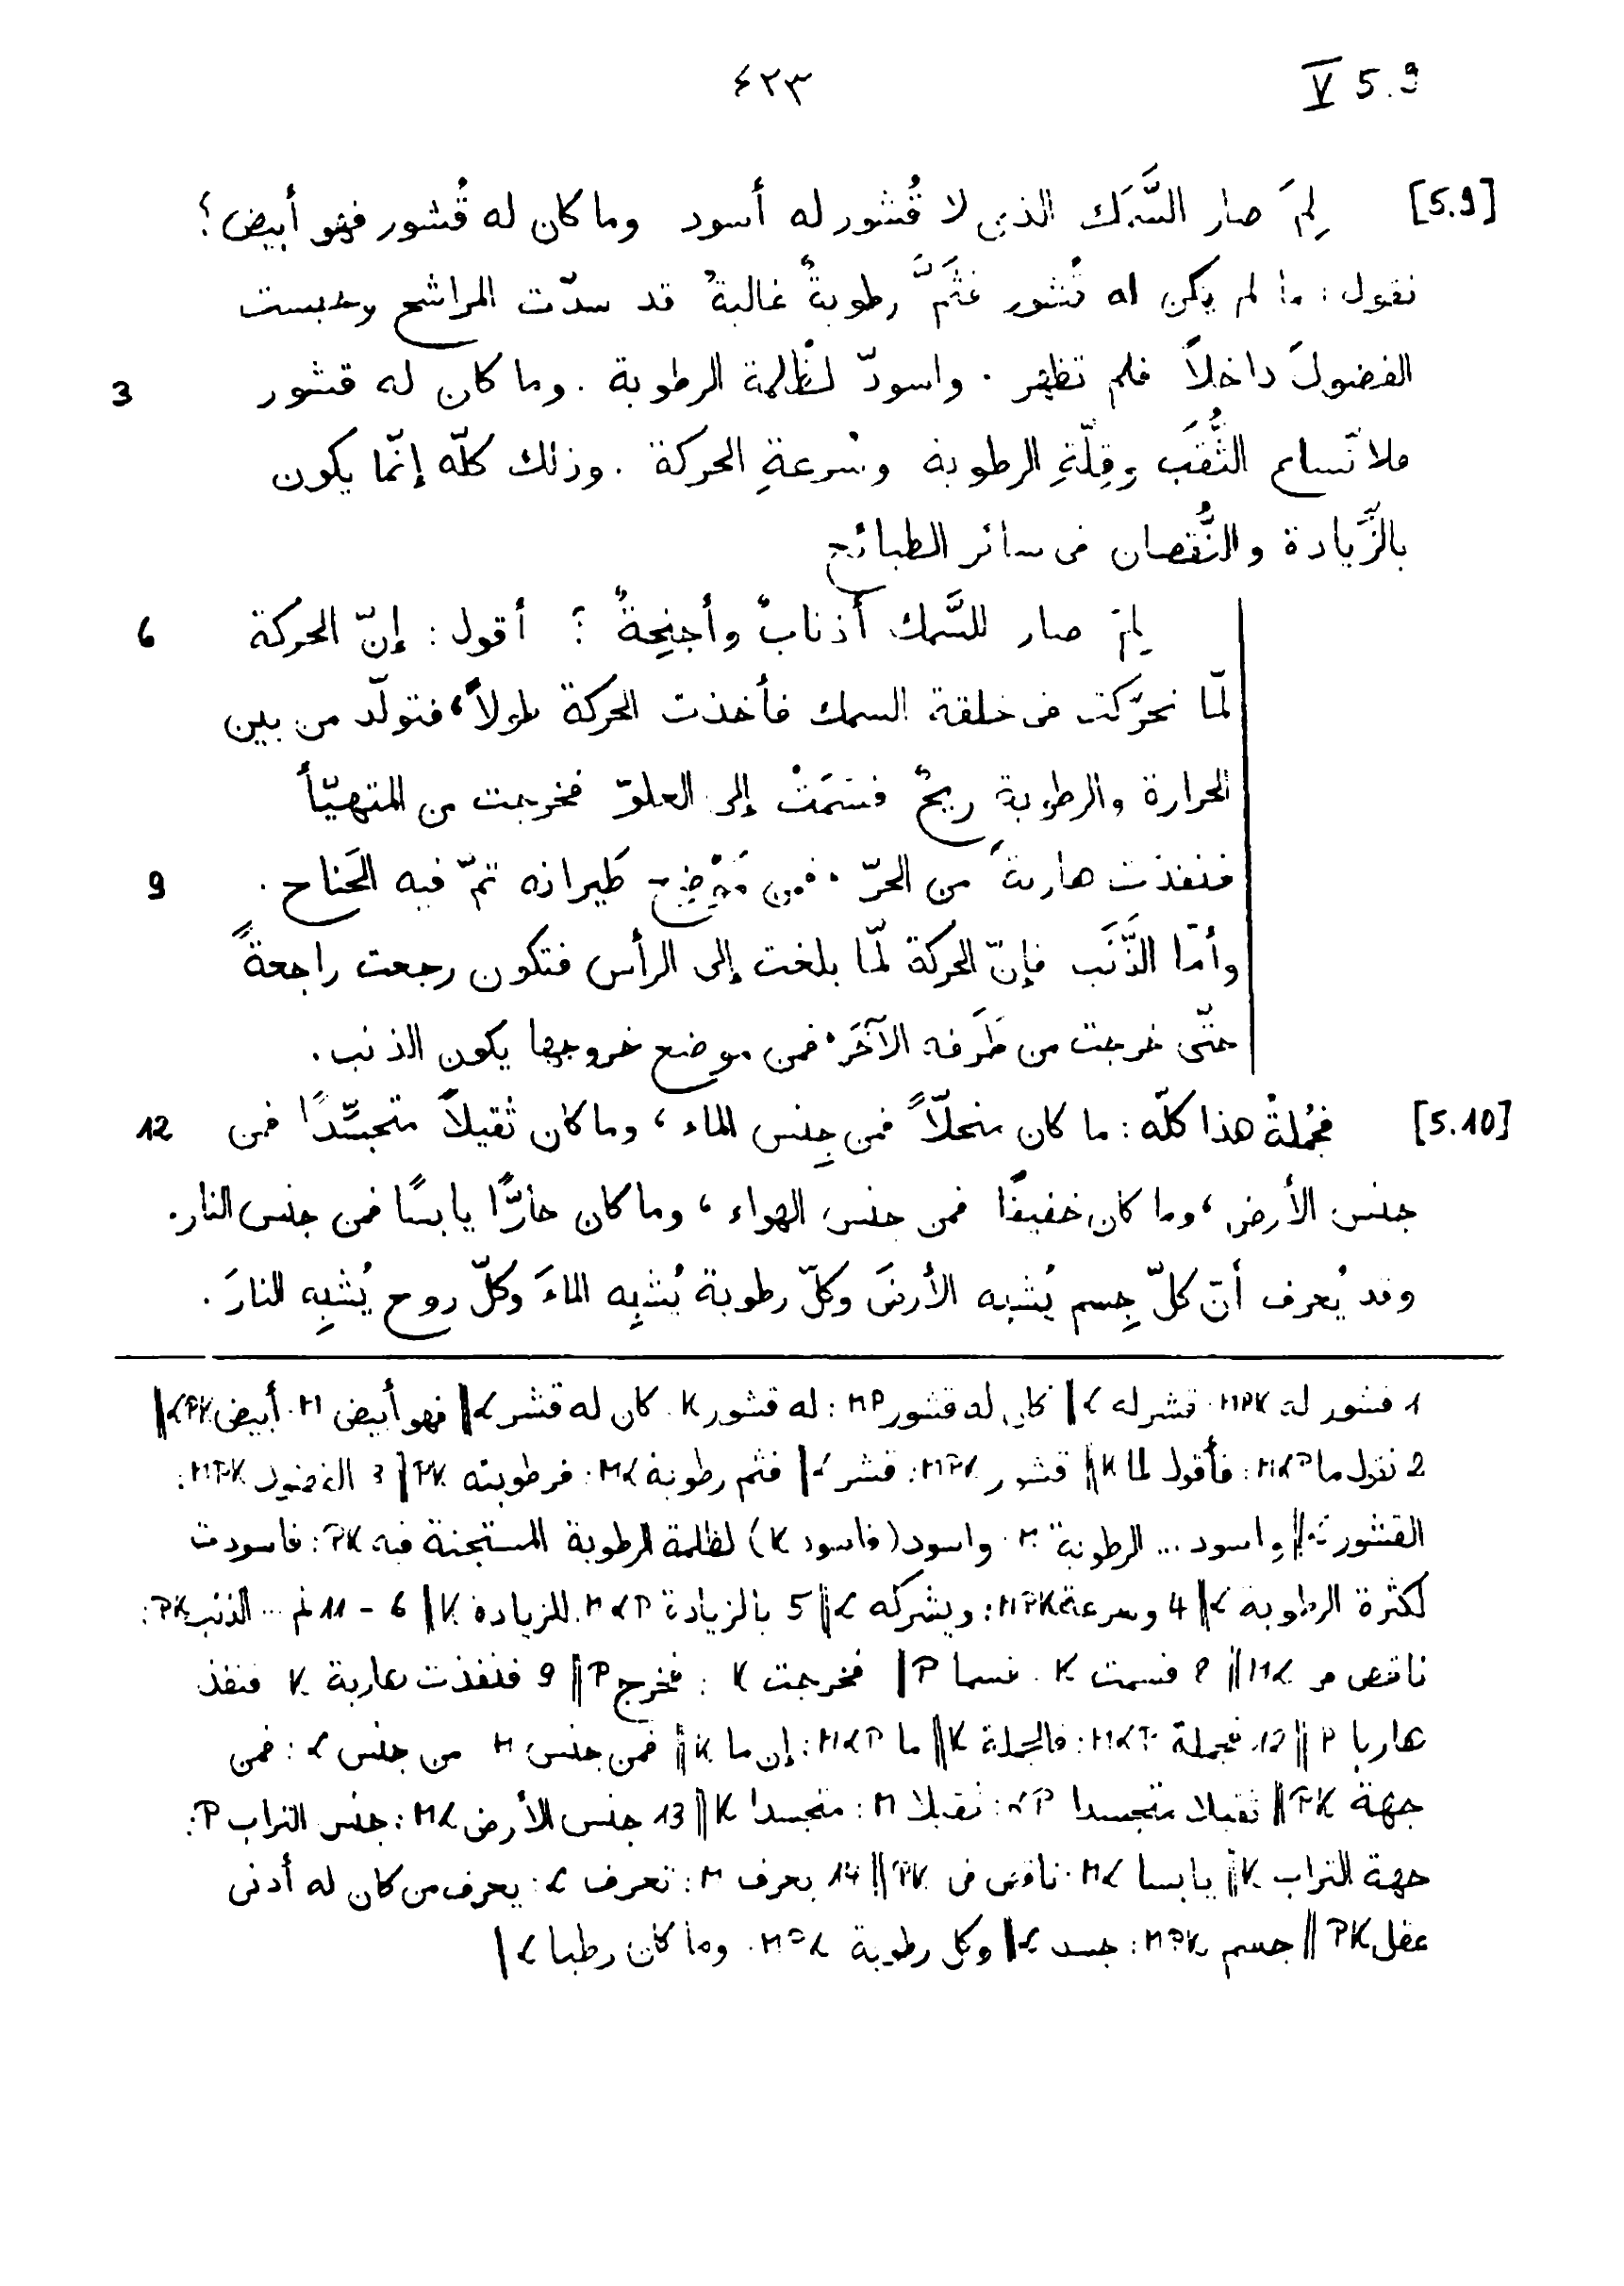 ٤٢٣ V 5.9
[5.9] لِمَ صار السَّمَك الذي لا قُشور له أسود وما كان له قُشور فهو أبيض؟
نقول: ما لم يكن له قُشور فثَمَّ رطوبةٌ غالبةٌ قد سدّت المراشح وحبست
3 الفضولَ داخلاً فلم تظهر. واسودّ لظُلمة الرطوبة. وما كان له قشور
فلاتّساع الثُّقَب وقِلّةِ الرطوبة وسُرعةِ الحركة. وذلك كلّه إنّما يكون
بالزِّيادة والنُّقصان في سائر الطبائع
6 لِمَ صار للسَّمك أذنابٌ وأجنِحةٌ؟ أقول: إنّ الحركة
لمّا تحرّكت في خلقة السمك فأخذت الحركة طولاً، فتولّد من بين
الحرارة والرطوبة ريحٌ فسَمَتْ إلى العلوّ فخرجت من المتهيّأ
9 فنفذت هاربةً من الحرّ. فمن مَوْضِع طَيرانه تمّ فيه الجَناح.
وأمّا الذَّنَب فإنّ الحركة لمّا بلغت إلى الرأس فتكون رجعت راجعةً
حتّى خرجت من طَرَفه الآخَر. فمن موضع خروجها يكون الذنب.
12 [5.10] فجُملةُ هذا كلّه: ما كان منحلّاً فمن جِنس الماء، وما كان ثقيلاً متجسّدًا فمن
جنس الأرض، وما كان خفيفًا فمن جنس الهواء، وما كان حارًّا يابسًا فمن جنس النار.
وقد يُعرف أنّ كلّ جِسم يُشبه الأرضَ وكلّ رطوبة يُشبِه الماءَ وكلّ روح يُشبِه النارَ.
1 قشور له MPK: قشر له L‖ كان له قشور MP: له قشور K. كان له قشر L‖ فهو أبيض M: أبيض LPK‖
2 نقول ما MLP: فأقول لما K‖ قشور MPK: قشر L‖ فثم رطوبة ML: فرطوبته PK‖ 3 الفضول MPK:
القشور L‖ واسود ... الرطوبة M: واسود (فاسود K) لظلمة الرطوبة المستجنة فيه PK: فاسودت
لكثرة الرطوبة L‖ 4 وسرعة MPK: ويشركه L‖ 5 بالزيادة MLP: للزيادة K‖ 6 - 11 لم ... الذنب PK:
ناقص في ML‖ 8 فسمت K: فسما P‖ فخرجت K: فخرج P‖ 9 فنفذت هاربة K: فنفذ
هاربا P‖ 12 فجملة MLP: فالجملة K‖ ما MLP: إن ما K‖ فمن جنس M: من جنس L: فمن
جهة PK‖ ثقيلا متجسدا LP: ثقيلا M: متجسدا K‖ 13 جنس الأرض ML: جنس التراب P:
جهة التراب K‖ يابسا ML: ناقص في PK‖ 14 يعرف M: تعرف L: يعرف من كان له أدنى
عقل PK‖ جسم MPK: جسد L‖ وكل رطوبة MPK: وما كان رطبا L‖